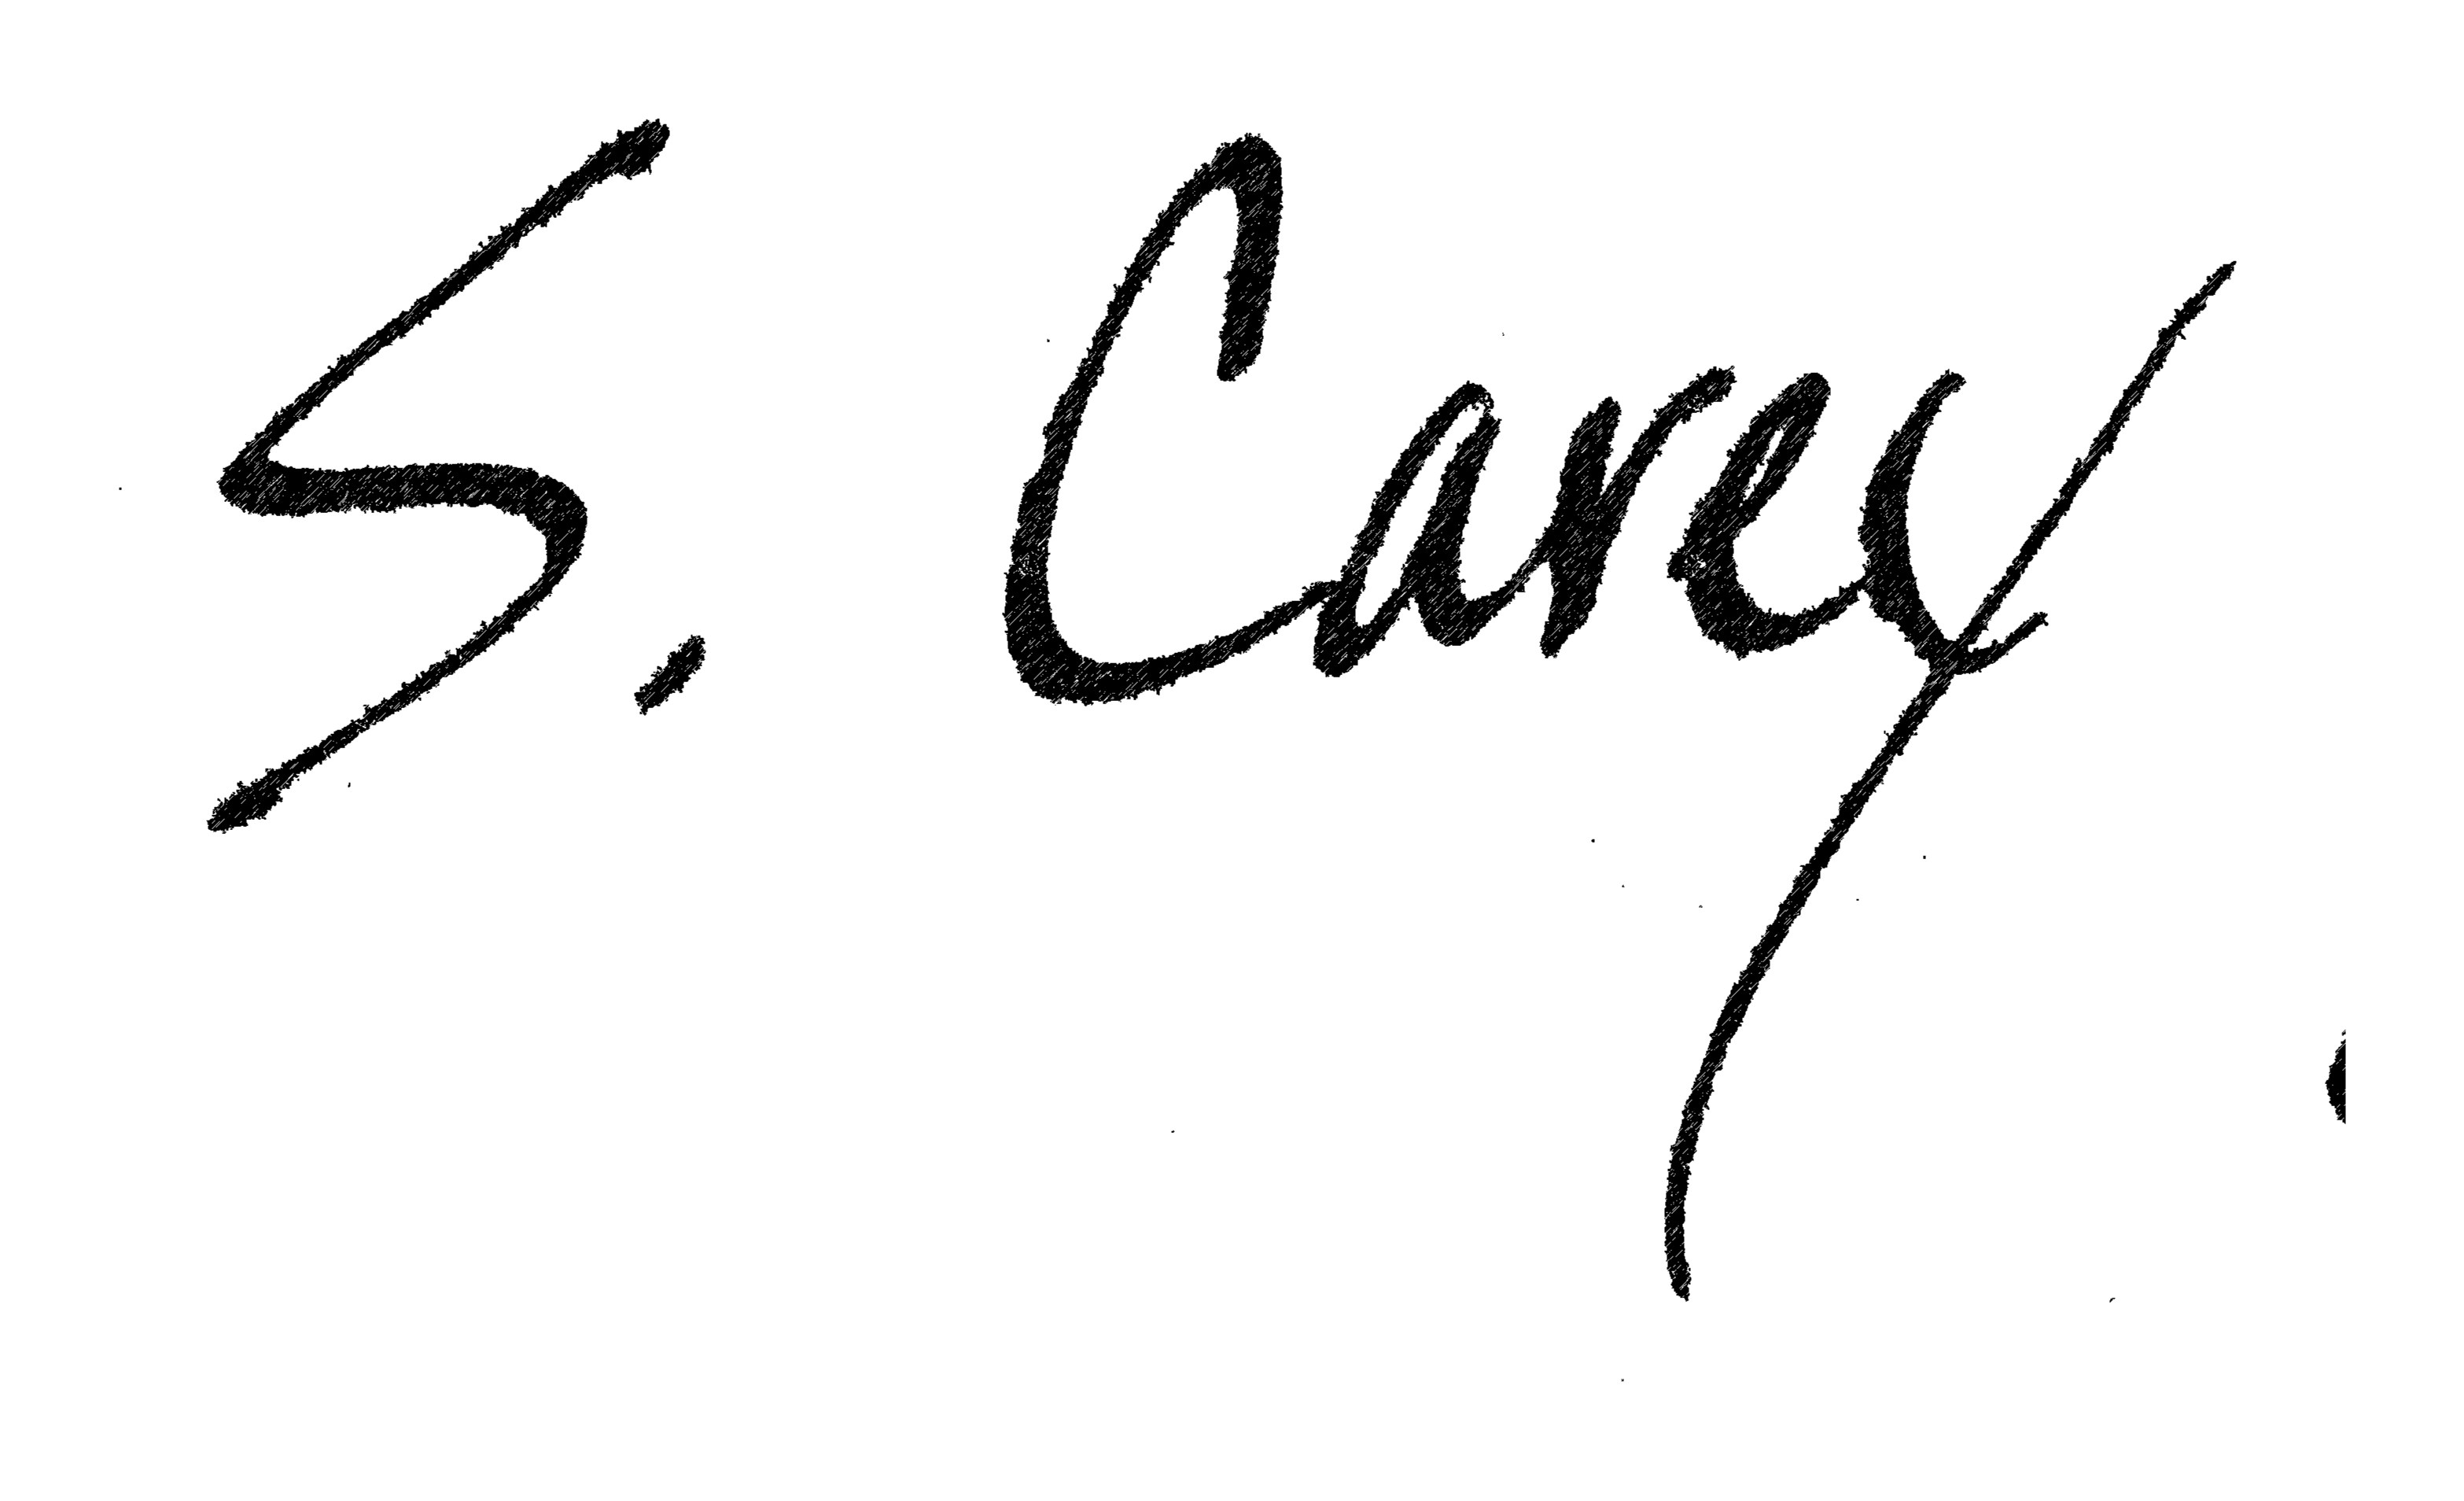 S. Carey